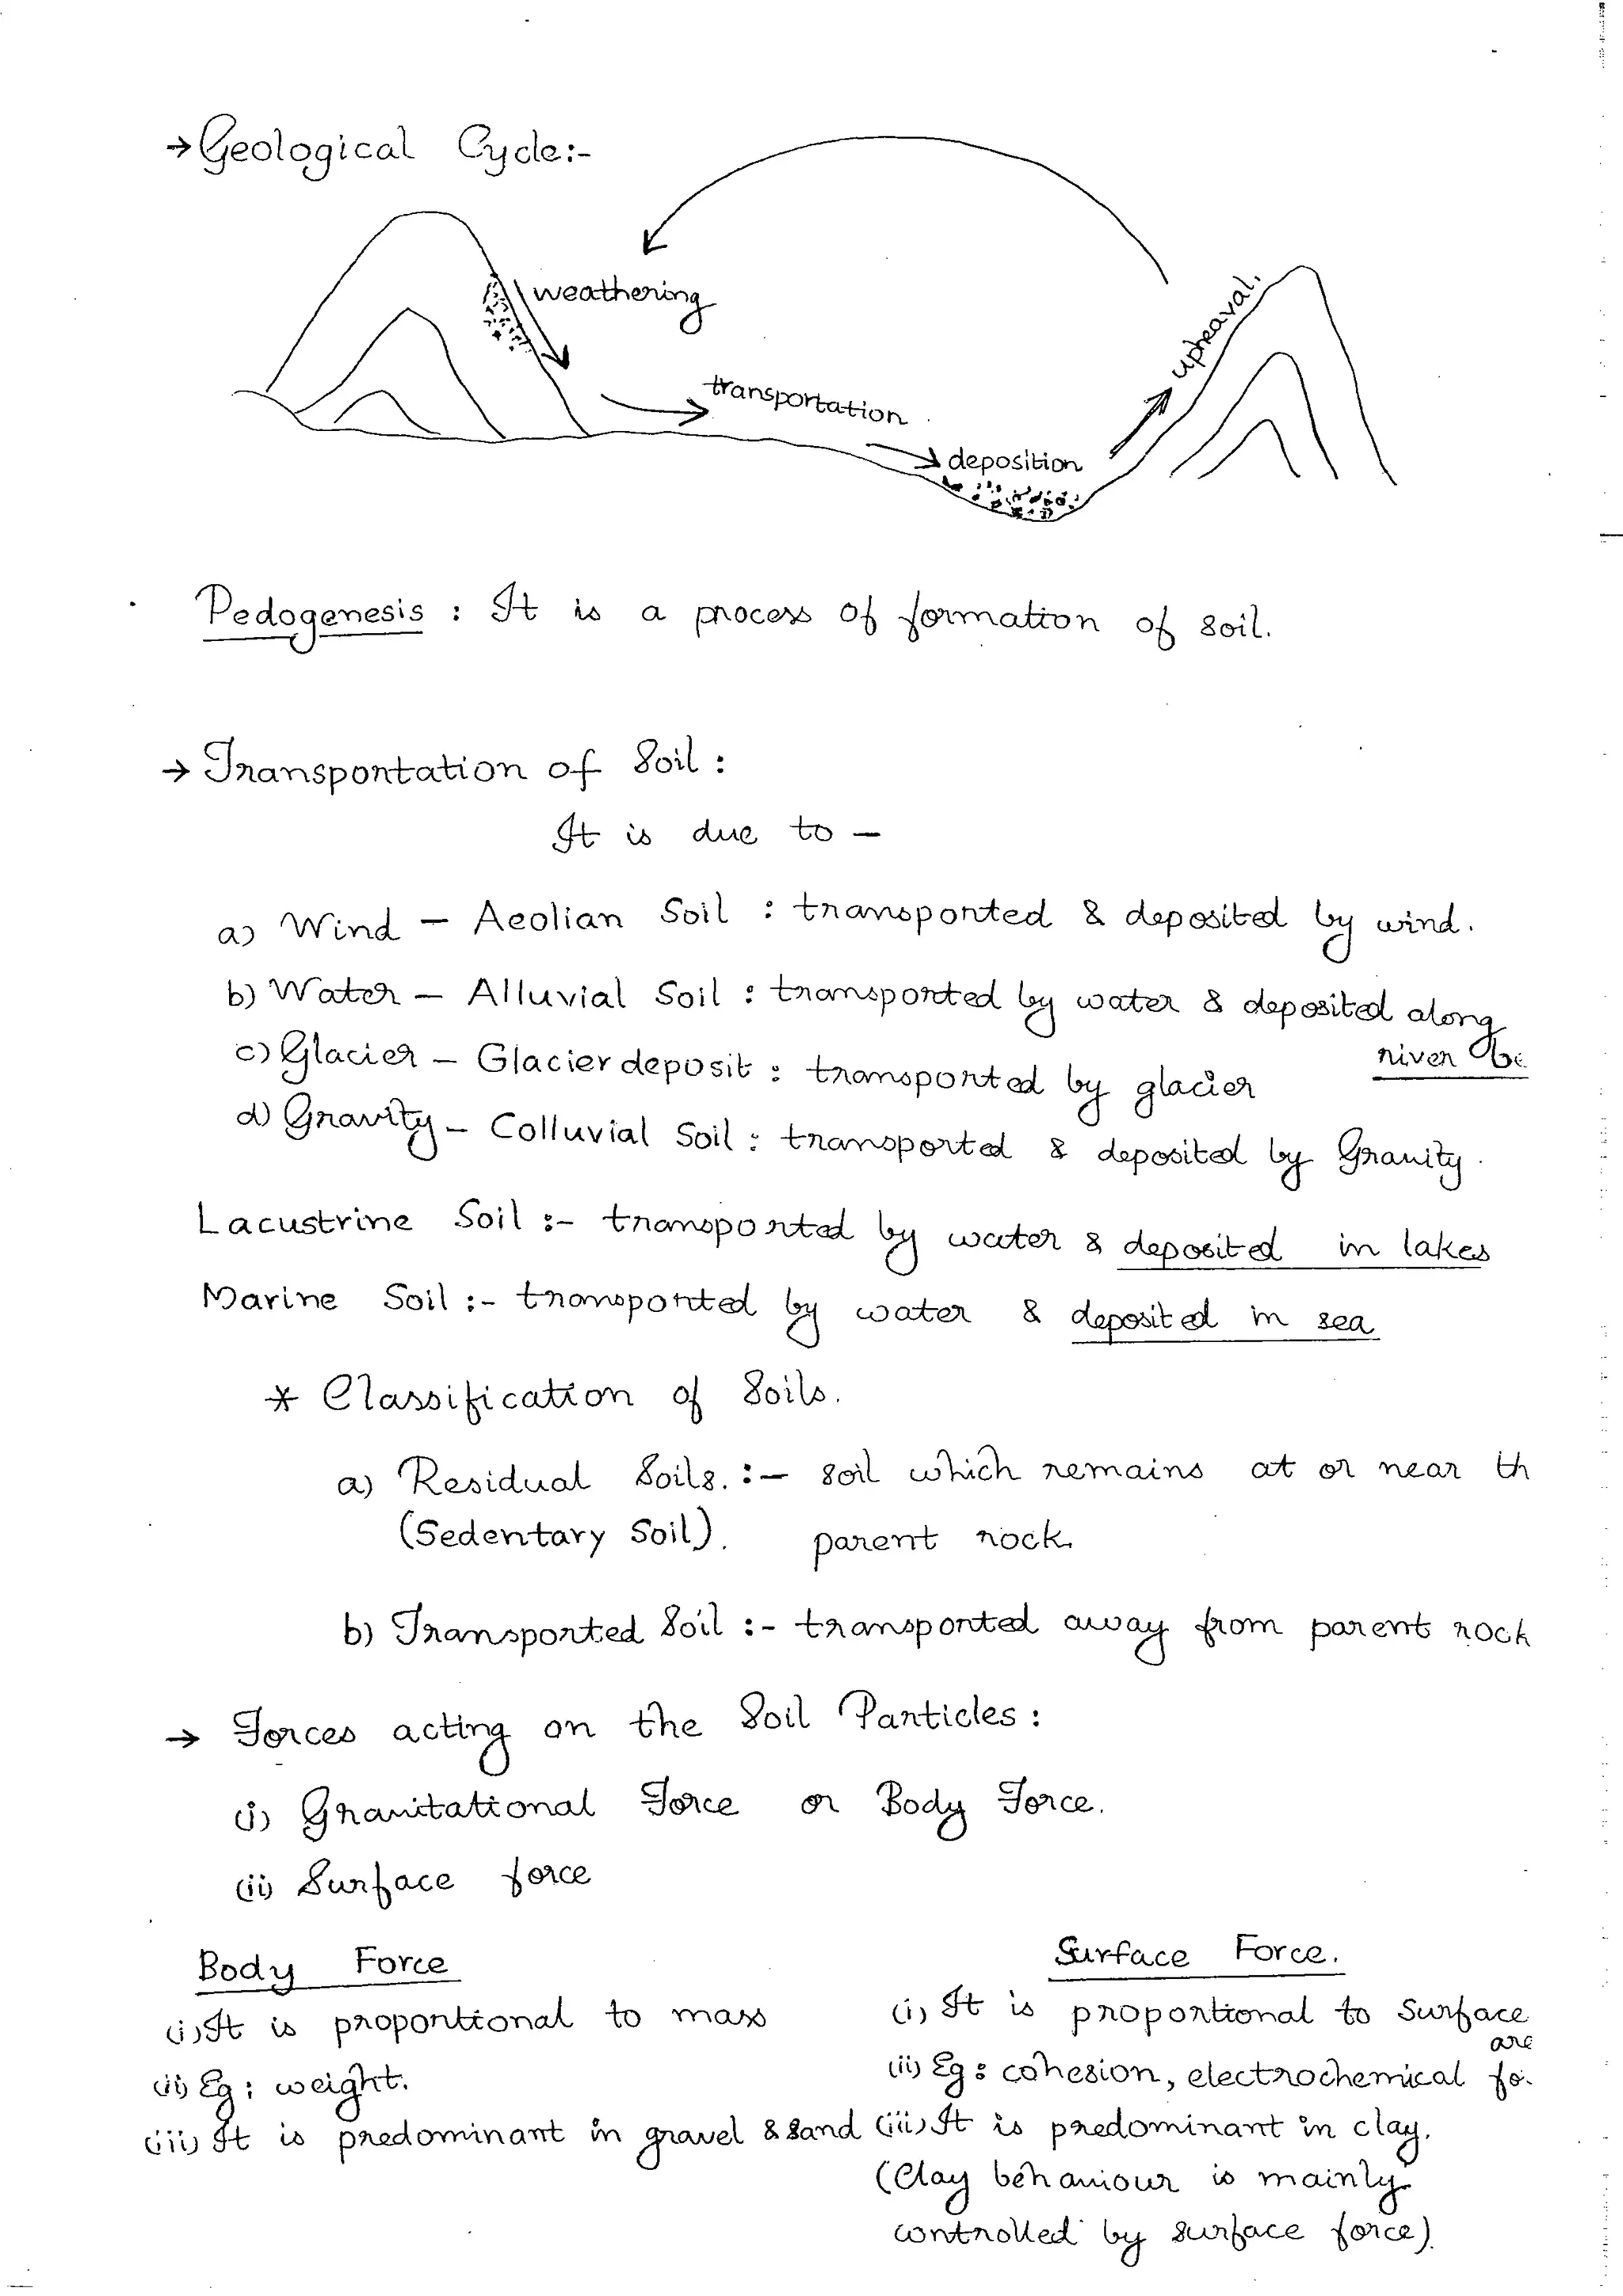 → Geological Cycle:-
weathering
upheaval.
transportation
deposition
Pedogenesis : It is a process of formation of soil.
→ Transportation of Soil :
It is due to –
a) Wind – Aeolian Soil : transported & deposited by wind.
b) Water – Alluvial Soil : transported by water & deposited along
river be
c) Glacier – Glacier deposit : transported by glacier
d) Gravity – Colluvial Soil : transported & deposited by Gravity.
Lacustrine Soil :- transported by water & deposited in lakes
Marine Soil :- transported by water & deposited in sea
* Classification of Soils.
a) Residual Soils. :- soil which remains at or near th
(Sedentary Soil). parent rock.
b) Transported Soil :- transported away from parent rock
→ Forces acting on the Soil Particles :
(i) Gravitational Force or Body Force.
(ii) Surface force
Body Force
Surface Force.
(i) It is proportional to mass
(i) It is proportional to Surface
are
(ii) Eg : weight.
(ii) Eg : cohesion, electrochemical fo.
(iii) It is predominant in gravel & sand
(iii) It is predominant in clay.
(Clay behaviour is mainly
controlled by surface force).